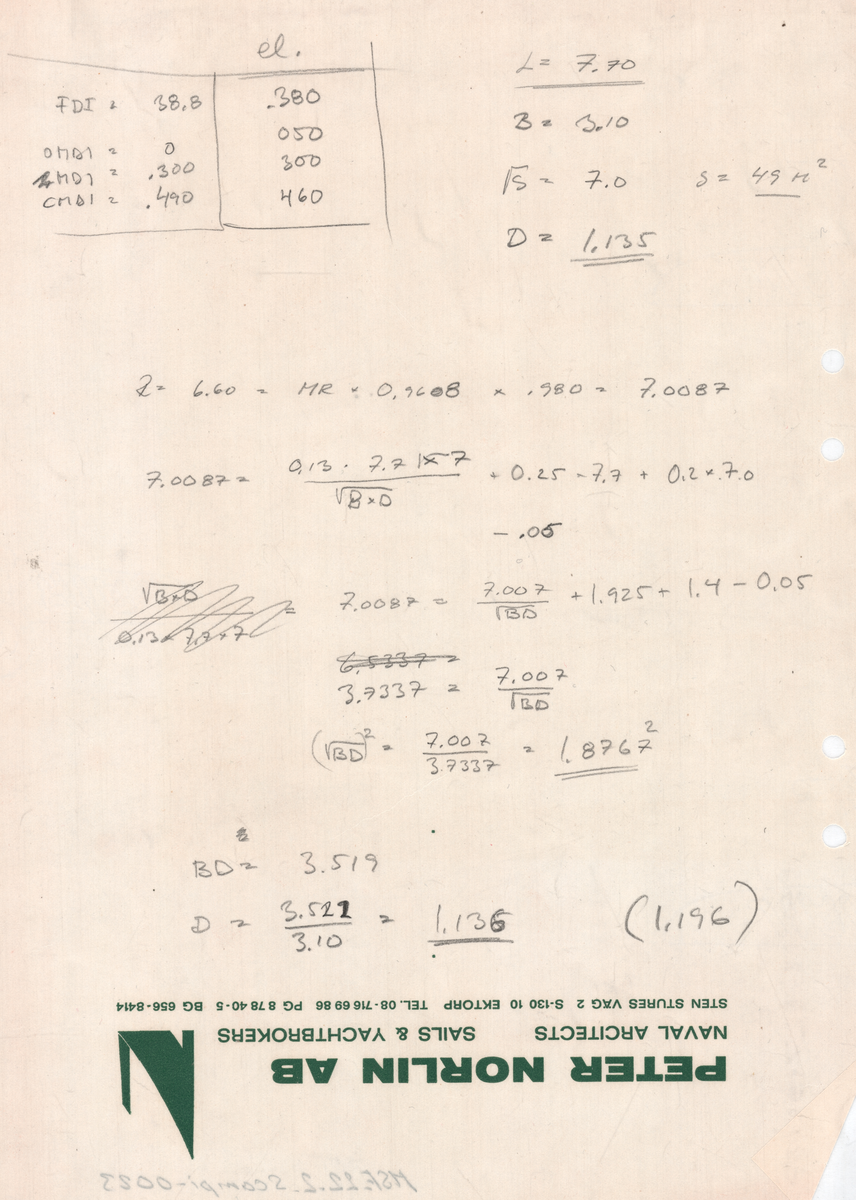 el.
FDI = 38.8 .380
050
OMDI = 0
MDI = .300 300
CMDI = .490 460
L = 7.70
B = 3.10
√S = 7.0 S = 49 M²
D = 1.135
R = 6.60 = MR × 0,9608 × .980 = 7.0087
7.0087 = 0.13 · 7.7 × 7 / √B×D + 0.25 - 7.7 + 0.2 × 7.0
- .05
√B×D / 0.13 × 7.7 × 7 = 7.0087 = 7.007 / √BD + 1.925 + 1.4 - 0.05
6.5337 =
3.7337 = 7.007 / √BD
(√BD)² = 7.007 / 3.7337 = 1.8767²
BD = 3.519
D = 3.521 / 3.10 = 1.136 (1.196)
STEN STURES VÄG 2 S-130 10 EKTORP TEL. 08-716 69 86 PG 8 78 40-5 BG 656-8414
NAVAL ARCHITECTS SAILS & YACHTBROKERS
PETER NORLIN AB
MSF.22.2_Scampi-0023